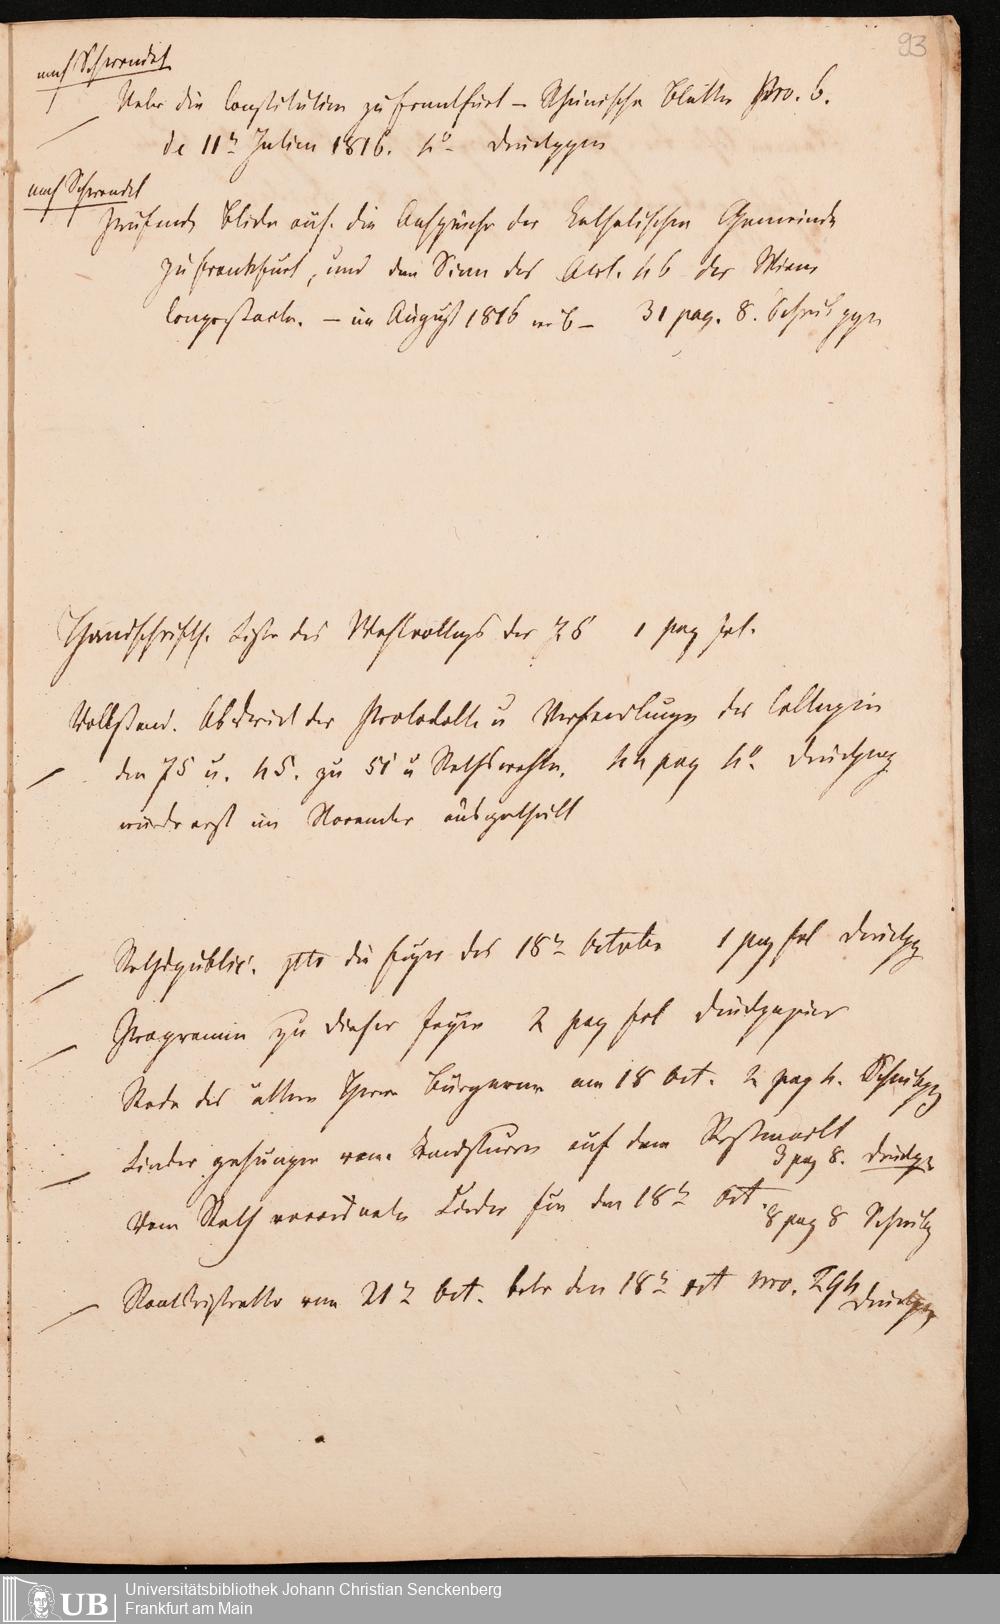 93
nach Schwendel
Ueber die Constitution zu Frankfurt – Rheinische Blätter Nro. 6.
de 11t Julius 1816. 4o – Druckppr
nach Schwendel
Prüfende Blicke auf die Ansprüche der katholischen Gemeinde
zu Frankfurt, und den Sinn des Art. 46 der Wiener
Congreßacte. – im August 1816 – 31 pag. 8. Schreibppr
Handschriftl. Liste des Wahlcollegs der 75 1 pag fol.
Vollständ. Abdruck der Protokolle u Verhandlungen des Collegiu
der 75 u. 45. zu 51 u Rathswahln. 44 pag 4o. Druckpap
wurde erst im November ausgetheilt
Rathspublic. die Feyer des 18t October 1 pag fol Druckpp
Programm zu dieser Feyer 2 pag fol Druckpapier
Rede des ältern Herrn Bürgerm am 18 Oct. 2 pag 4. Schreibpp
Lieder gesungen vom Landsturm auf dem Roßmarkt
3 pag 8. Druckpp
Vom Rath verordnete Lieder für den 18t Oct.
8 pag 8 Schreibp
Staatsristretto vom 21t Oct. betr den 18t oct nro. 294
Druckpp
Universitätsbibliothek Johann Christian Senckenberg
Frankfurt am Main
UB